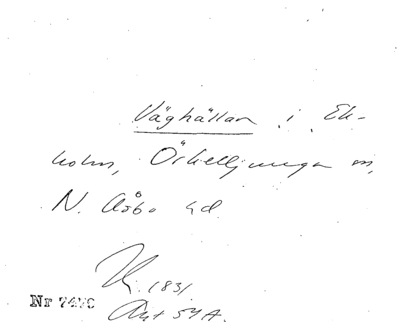 Väghällan i Ek-
holm, Örkelljunga sn,
N. Åsbo hd
1831
Nr 7470
Akt 54A.